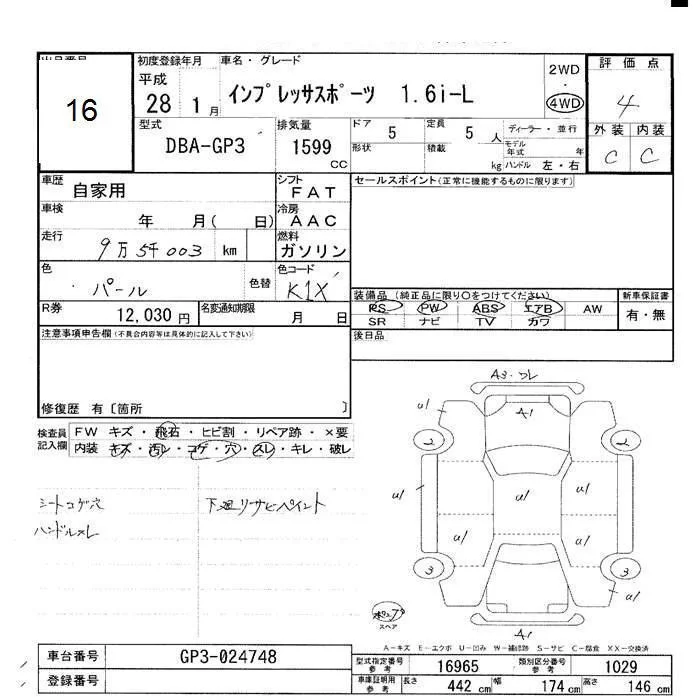 出品番号
16
初度登録年月
平成
28 1 月
車名・グレード
インプレッサスポーツ 1.6i-L
2WD
・
4WD
評価点
4
外装 内装
C C
型式
DBA-GP3
排気量
1599
CC
ドア 5
形状
定員 5 人
積載 kg
ディーラー・並行
モデル年式 年
ハンドル 左・右
車歴
自家用
シフト
FAT
セールスポイント(正常に機能するものに限ります)
車検
年 月( 日)
冷房
AAC
走行
9万5千003 km
燃料
ガソリン
色
パール
色替
色コード
K1X
R券
12,030 円
名変通知期限
月 日
装備品(純正品に限り○をつけてください)
PS PW ABS エアB AW
SR ナビ TV カワ
新車保証書
有・無
注意事項申告欄(不具合内容等は具体的に記入して下さい)
後日品
修復歴 有〔箇所 〕
検査員記入欄
FW キズ・飛石・ヒビ割・リペア跡・×要
内装 キズ・汚レ・コゲ・穴・スレ・キレ・破レ
シートコゲ穴
ハンドルスレ
下廻リサビペイント
A3・フレ
A1
u1
2 2
u1 u1 u1
u1 u1
3 3
u1
スペア
A1
A-キズ E-エクボ U-凹み W-補修跡 S-サビ C-腐食 XX-交換済
車台番号 GP3-024748
登録番号
型式指定番号 参考 16965
類別区分番号 参考 1029
車庫証明用 参考 長さ 442 cm 幅 174 cm 高さ 146 cm